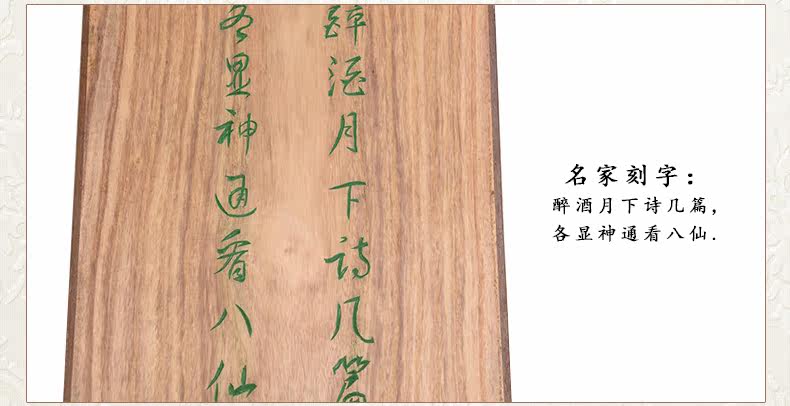 醉酒月下诗几篇
各显神通看八仙
名家刻字：
醉酒月下诗几篇，
各显神通看八仙.